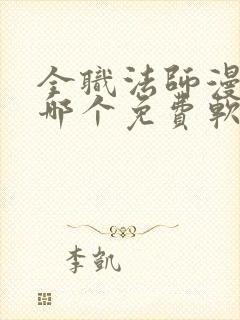 全職法師漫
哪个免費軟
李凱